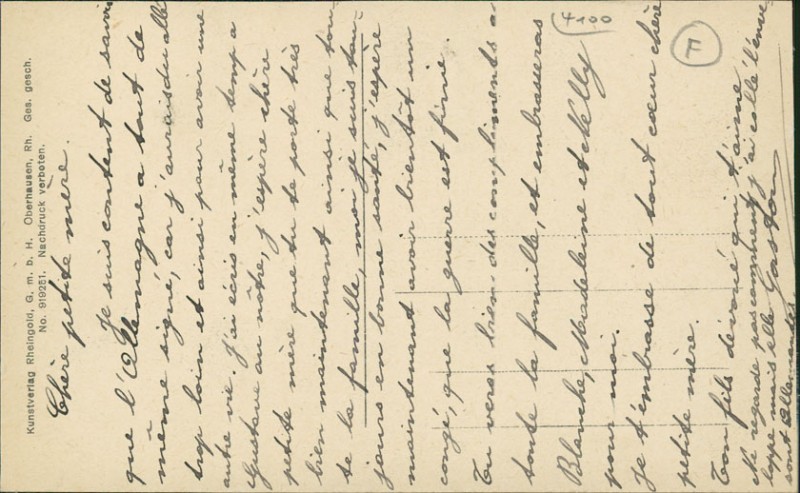 Kunstverlag Rheingold, G. m. b. H. Oberhausen, Rh. Ges. gesch.
No. 919251. Nachdruck verboten.
Chère petite mère.
Je suis content de savoir
que l'Allemagne a tout de
même signé, car j'aurais du allé
trop loin et ainsi pour avoir une
autre vie. J'ai écris en même temp a
Gustave au nôtre, j'espère chère
petite mère que tu te porte très
bien maintenant ainsi que tou-
te la famille, moi je suis tou-
jours en bonne santé, j'espère
maintenant avoir bientôt un
congé, que la guerre est finie.
Tu veras bien des compliments a
toute la famille, et embrasseras
Blanche, Madeleine et Nelly
pour moi.
Je t'embrasse de tout cœur chère
petite mère.
Ton fils dévoué qui t'aime
Gaston
Ne regarde pas comment j'ai collé l'enve-
loppe mais elle
sont Allemandes
F
F100